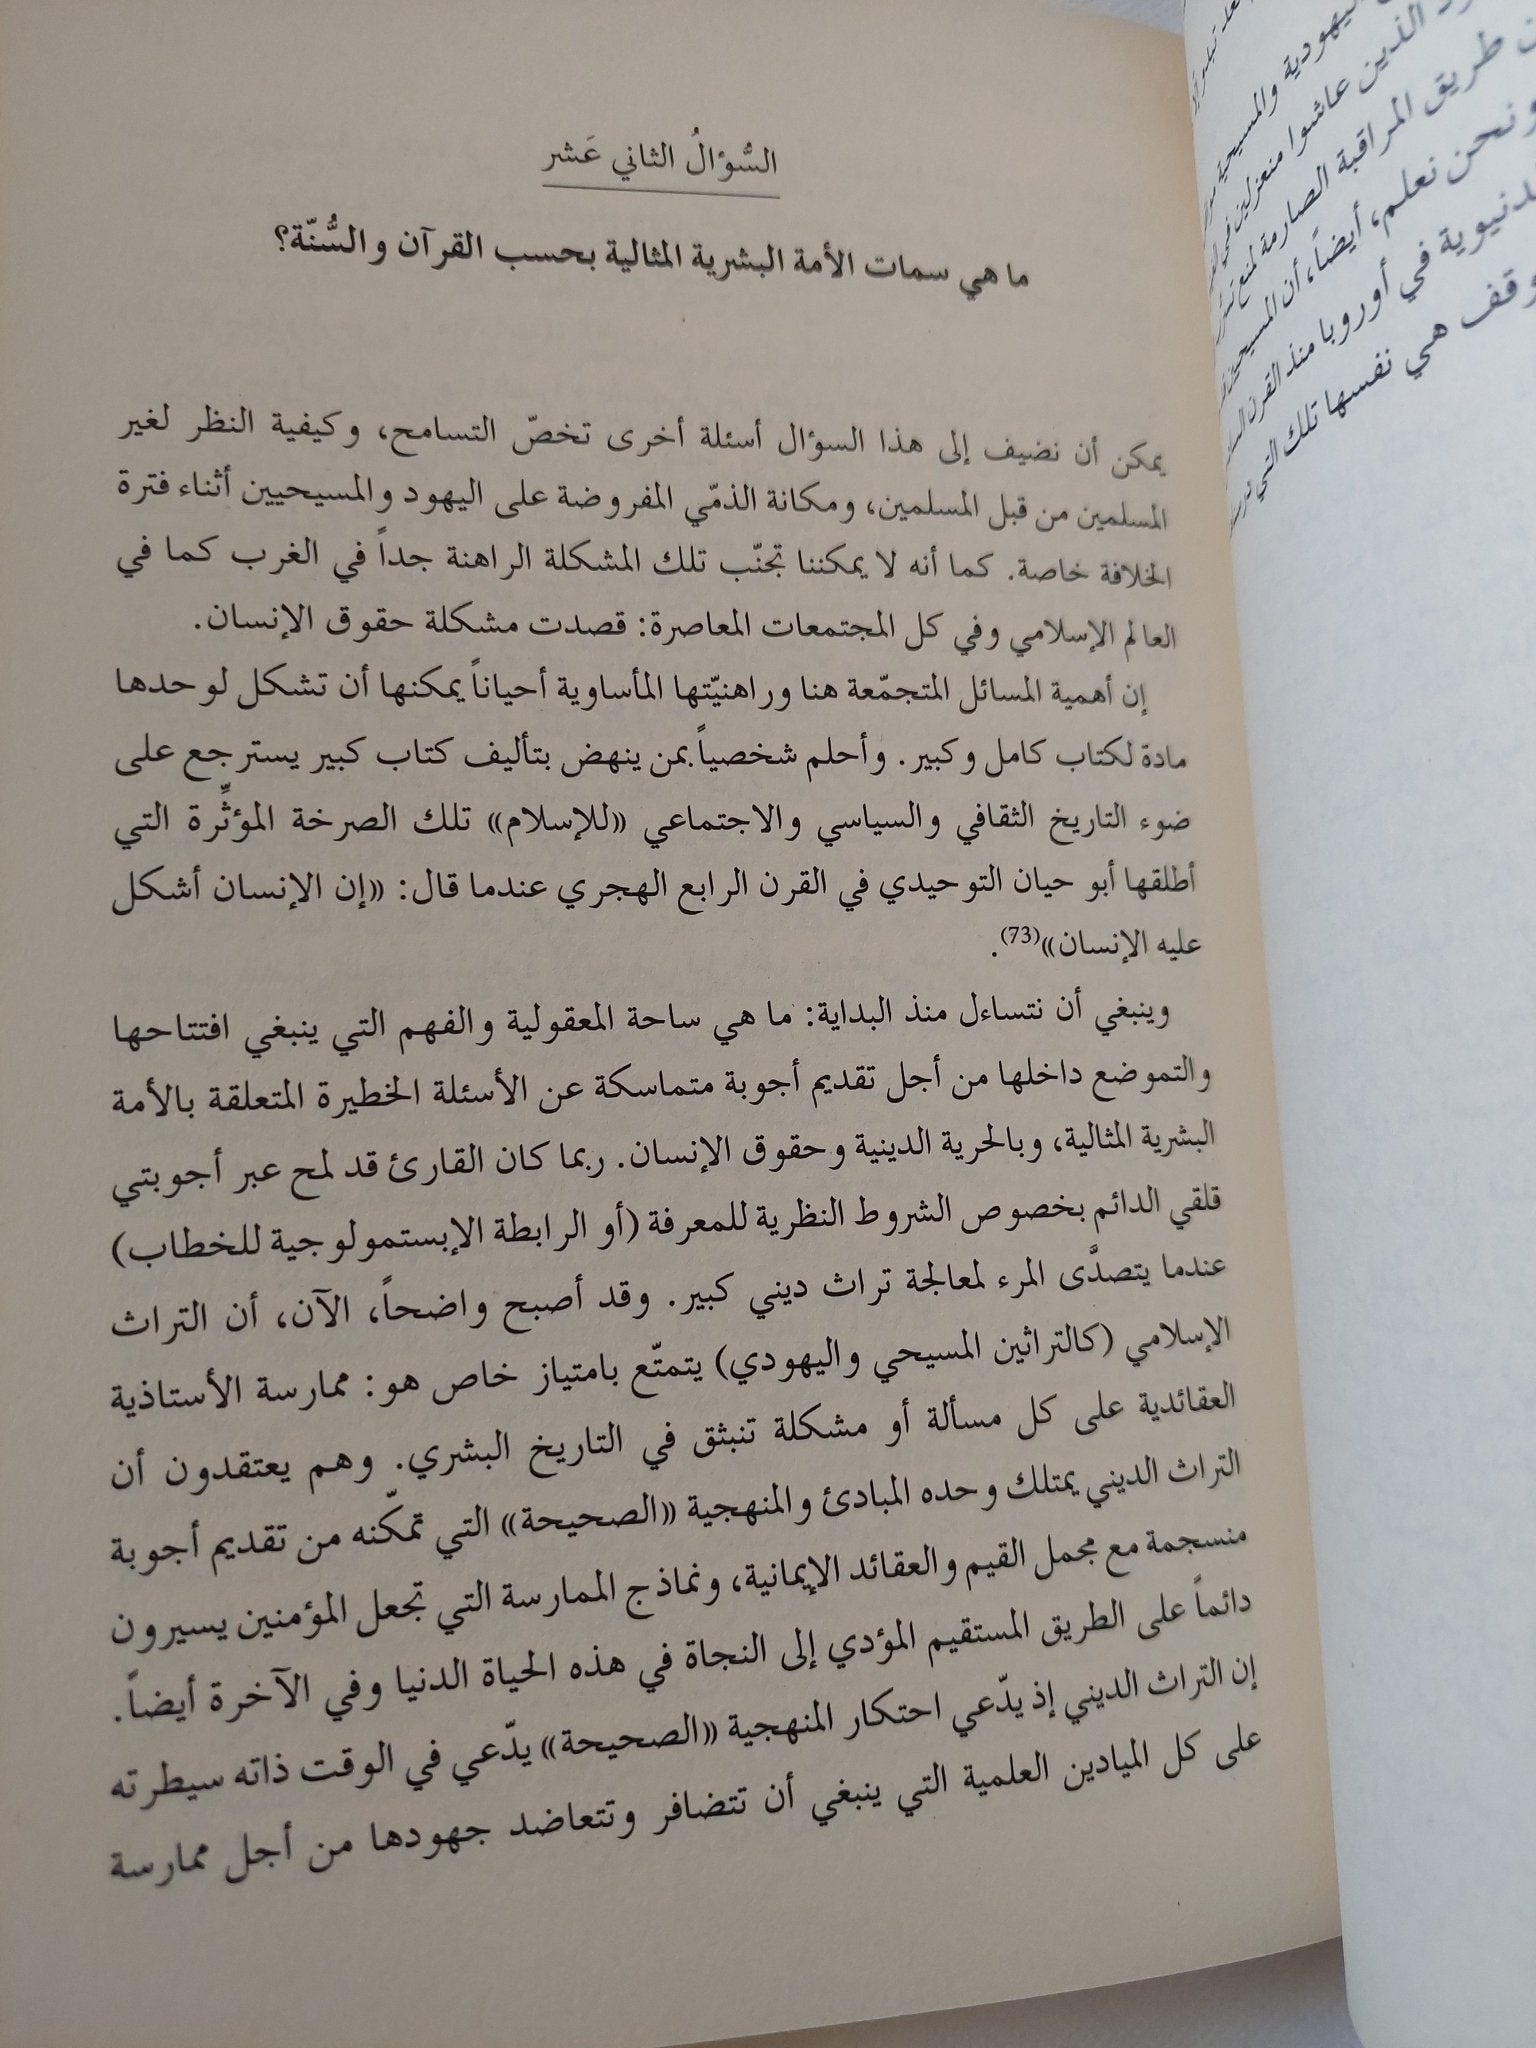 السُّؤالُ الثاني عَشر
ما هي سمات الأمة البشرية المثالية بحسب القرآن والسُّنّة؟
يمكن أن نضيف إلى هذا السؤال أسئلة أخرى تخصّ التسامح، وكيفية النظر لغير
المسلمين من قبل المسلمين، ومكانة الذمّي المفروضة على اليهود والمسيحيين أثناء فترة
الخلافة خاصة. كما أنه لا يمكننا تجنّب تلك المشكلة الراهنة جداً في الغرب كما في
العالم الإسلامي وفي كل المجتمعات المعاصرة: قصدت مشكلة حقوق الإنسان.
إن أهمية المسائل المتجمّعة هنا وراهنيّتها المأساوية أحياناً يمكنها أن تشكل لوحدها
مادة لكتاب كامل وكبير. وأحلم شخصياً بمن ينهض بتأليف كتاب كبير يسترجع على
ضوء التاريخ الثقافي والسياسي والاجتماعي «للإسلام» تلك الصرخة المؤثِّرة التي
أطلقها أبو حيان التوحيدي في القرن الرابع الهجري عندما قال: «إن الإنسان أشكل
عليه الإنسان»(73).
وينبغي أن نتساءل منذ البداية: ما هي ساحة المعقولية والفهم التي ينبغي افتتاحها
والتموضع داخلها من أجل تقديم أجوبة متماسكة عن الأسئلة الخطيرة المتعلقة بالأمة
البشرية المثالية، وبالحرية الدينية وحقوق الإنسان. ربما كان القارئ قد لمح عبر أجوبتي
قلقي الدائم بخصوص الشروط النظرية للمعرفة (أو الرابطة الإبستمولوجية للخطاب)
عندما يتصدَّى المرء لمعالجة تراث ديني كبير. وقد أصبح واضحاً، الآن، أن التراث
الإسلامي (كالتراثين المسيحي واليهودي) يتمتّع بامتياز خاص هو: ممارسة الأستاذية
العقائدية على كل مسألة أو مشكلة تنبثق في التاريخ البشري. وهم يعتقدون أن
التراث الديني يمتلك وحده المبادئ والمنهجية «الصحيحة» التي تمكّنه من تقديم أجوبة
منسجمة مع مجمل القيم والعقائد الإيمانية، ونماذج الممارسة التي تجعل المؤمنين يسيرون
دائماً على الطريق المستقيم المؤدي إلى النجاة في هذه الحياة الدنيا وفي الآخرة أيضاً.
إن التراث الديني إذ يدّعي احتكار المنهجية «الصحيحة» يدّعي في الوقت ذاته سيطرته
على كل الميادين العلمية التي ينبغي أن تتضافر وتتعاضد جهودها من أجل ممارسة
اليهودية والمسيحية
الذين عاشوا منعزلين في
طريق المراقبة الصارمة لمنع
ونحن نعلم، أيضاً، أن
في أوروبا منذ القرن
هي نفسها تلك التي